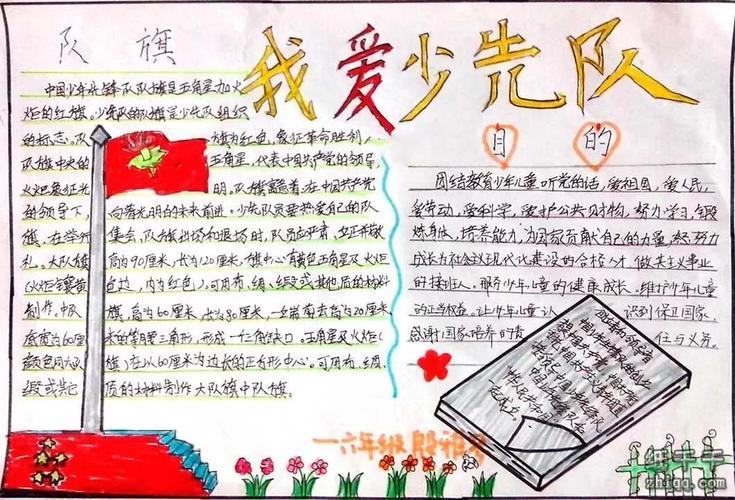 我爱少先队
队旗
中国少年先锋队队旗是五角星加火
炬的红旗。少先队的队旗是少先队组织
的标志。队 旗为红色，象征革命胜利，
队旗中央的 五角星，代表中国共产党的领导，
火炬象征光 明，队旗寓意着：在中国共产党
的领导下， 向着光明的未来前进。少先队员要热爱自己的队
旗，在举行 集会，队旗出场和退场时，队员应严肃、立正并敬
礼。大队旗 高为90厘米，长为120厘米，旗中心有黄色五角星及火炬
（火炬 色边，内为红色）。可用布、绸、缎或其他质的材料
制作。中队 旗，高为60厘米，长为80厘米，一端剪去高为20厘米
底宽为60厘 米的等腰三角形，形成一个三角缺口。五角星及火炬（
颜色同大队 旗）在以60厘米为边长的正方形中心。可用布、绸、
缎或其 质的材料制作大队旗中队旗。
目的
团结教育少年儿童，听党的话，爱祖国，爱人民，
爱劳动，爱科学，爱护公共财物，努力学习，锻
炼身体，培养能力，为国家贡献自己的力量，努力
成长为社会主义现代化建设的合格人才，做共主义事业
的接班人。 少年儿童的健康成长，维护少年儿童
的正当权益。让少年儿童认 识到保卫国家、
感谢国家培养的责 任与义务。
中国共产党
成立。
一六年级
zhiaq.com